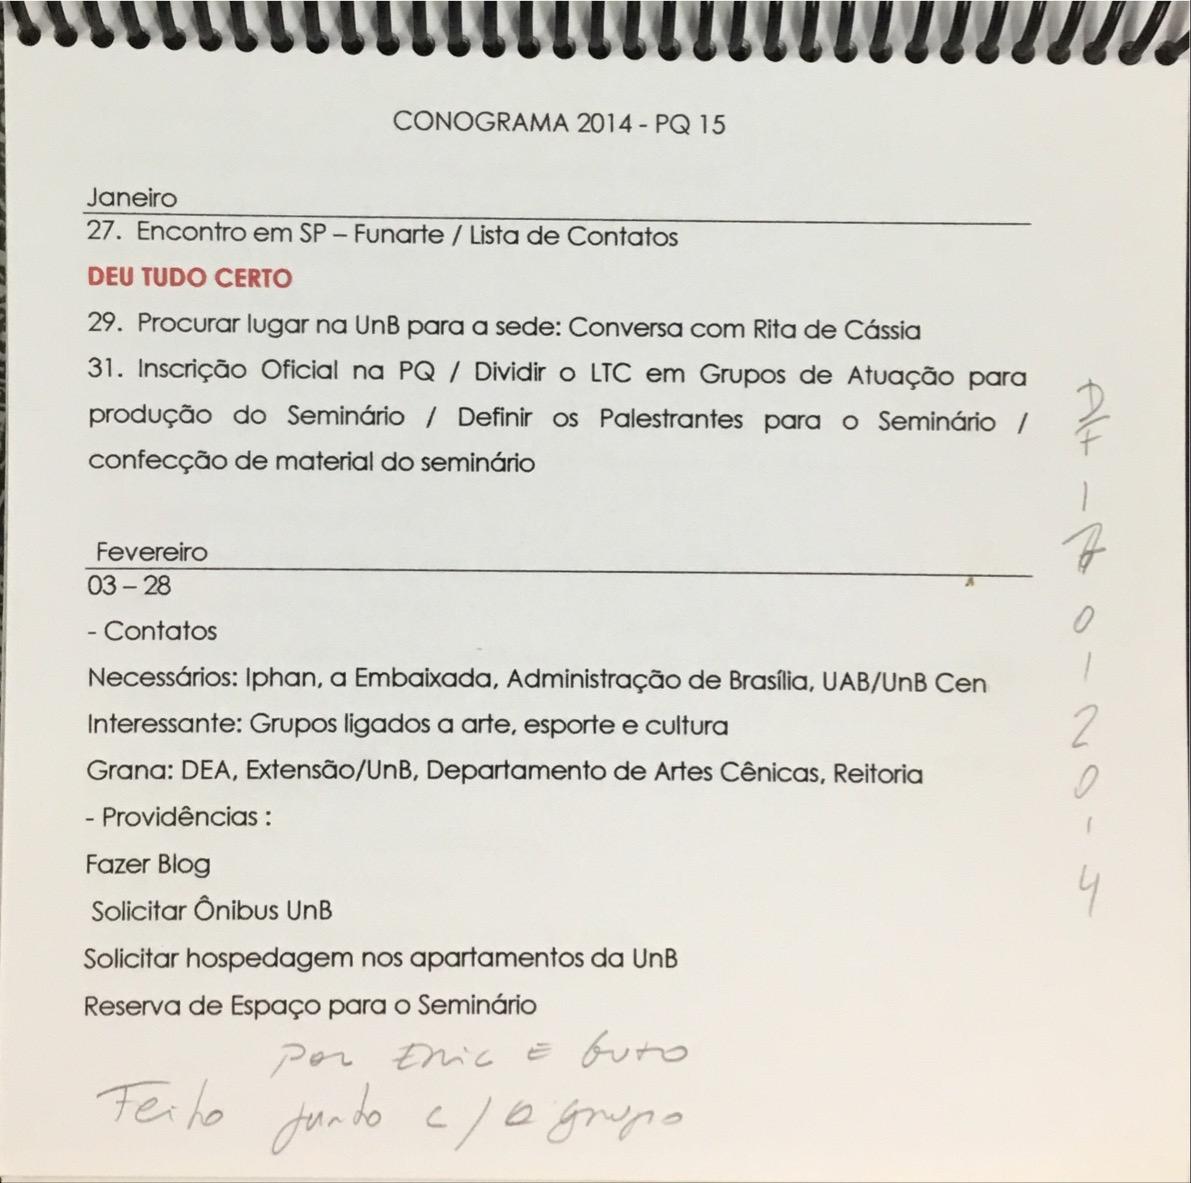 CONOGRAMA 2014 - PQ 15
Janeiro
27. Encontro em SP – Funarte / Lista de Contatos
DEU TUDO CERTO
29. Procurar lugar na UnB para a sede: Conversa com Rita de Cássia
31. Inscrição Oficial na PQ / Dividir o LTC em Grupos de Atuação para
produção do Seminário / Definir os Palestrantes para o Seminário /
confecção de material do seminário
Fevereiro
03 – 28
- Contatos
Necessários: Iphan, a Embaixada, Administração de Brasília, UAB/UnB Cen
Interessante: Grupos ligados a arte, esporte e cultura
Grana: DEA, Extensão/UnB, Departamento de Artes Cênicas, Reitoria
- Providências :
Fazer Blog
Solicitar Ônibus UnB
Solicitar hospedagem nos apartamentos da UnB
Reserva de Espaço para o Seminário
por Eric E Guto
Feito junto c/ o grupo
0
1
2
0
1
4